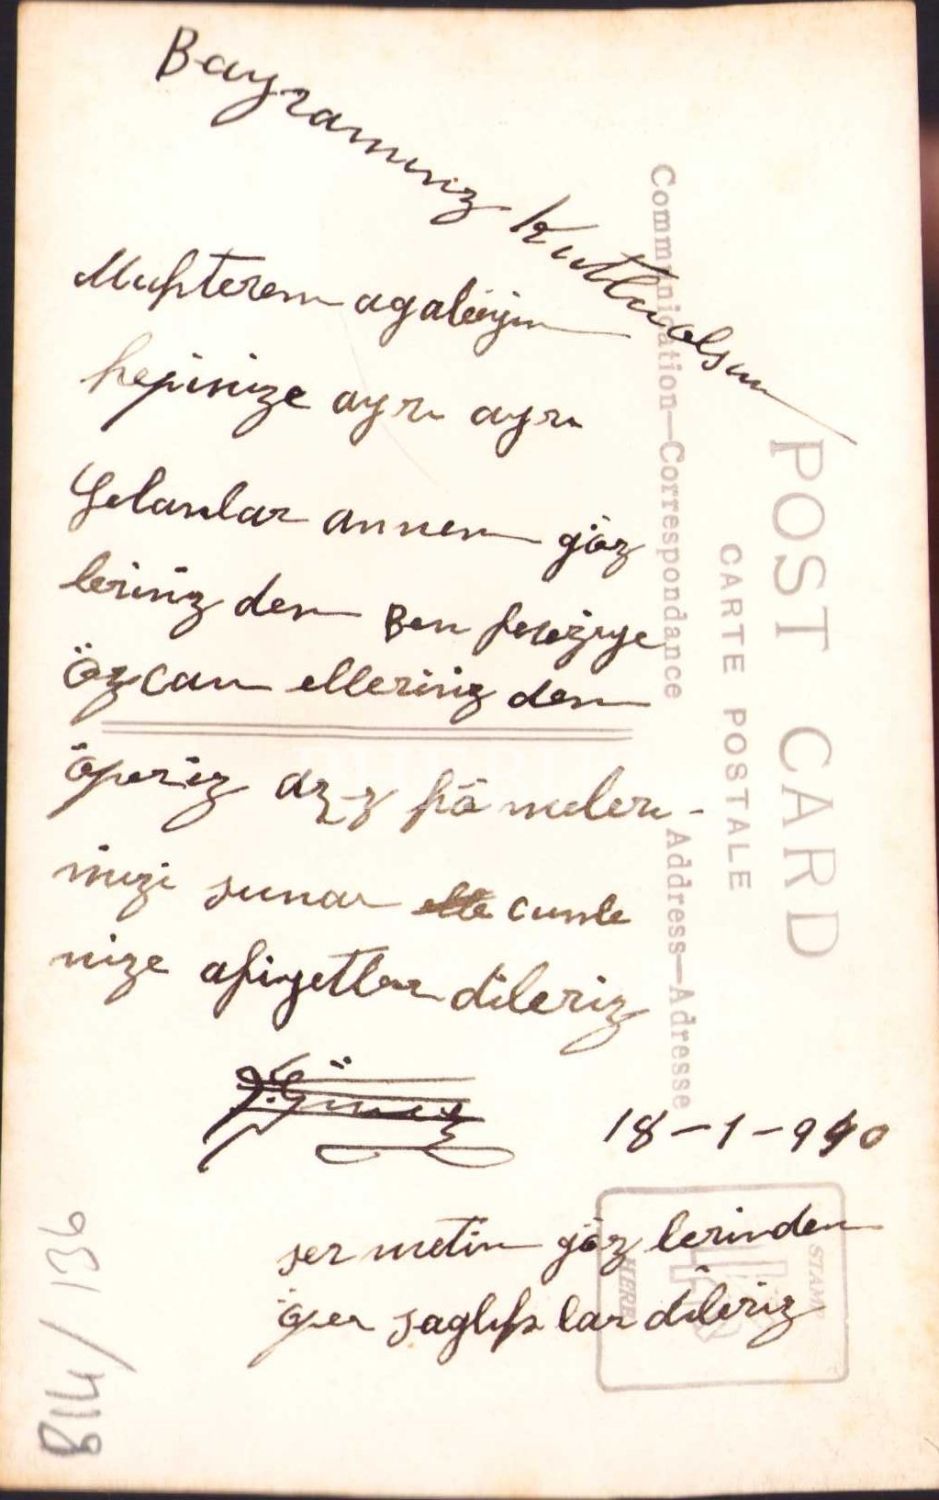 Bayramınız Kutlu olsun
Muhterem agabeyim
hepinize ayrı ayrı
Selamlar annem göz
leriniz den Ben
Özcan elleriniz den
öperiz
inizi sunar cumle
nize afiyetler dileriz
18-1-940
ser metin göz lerinden
öper saglık lar dileriz
POST CARD
CARTE POSTALE
Communication—Correspondance
Address—Adresse
STAMP
HERE